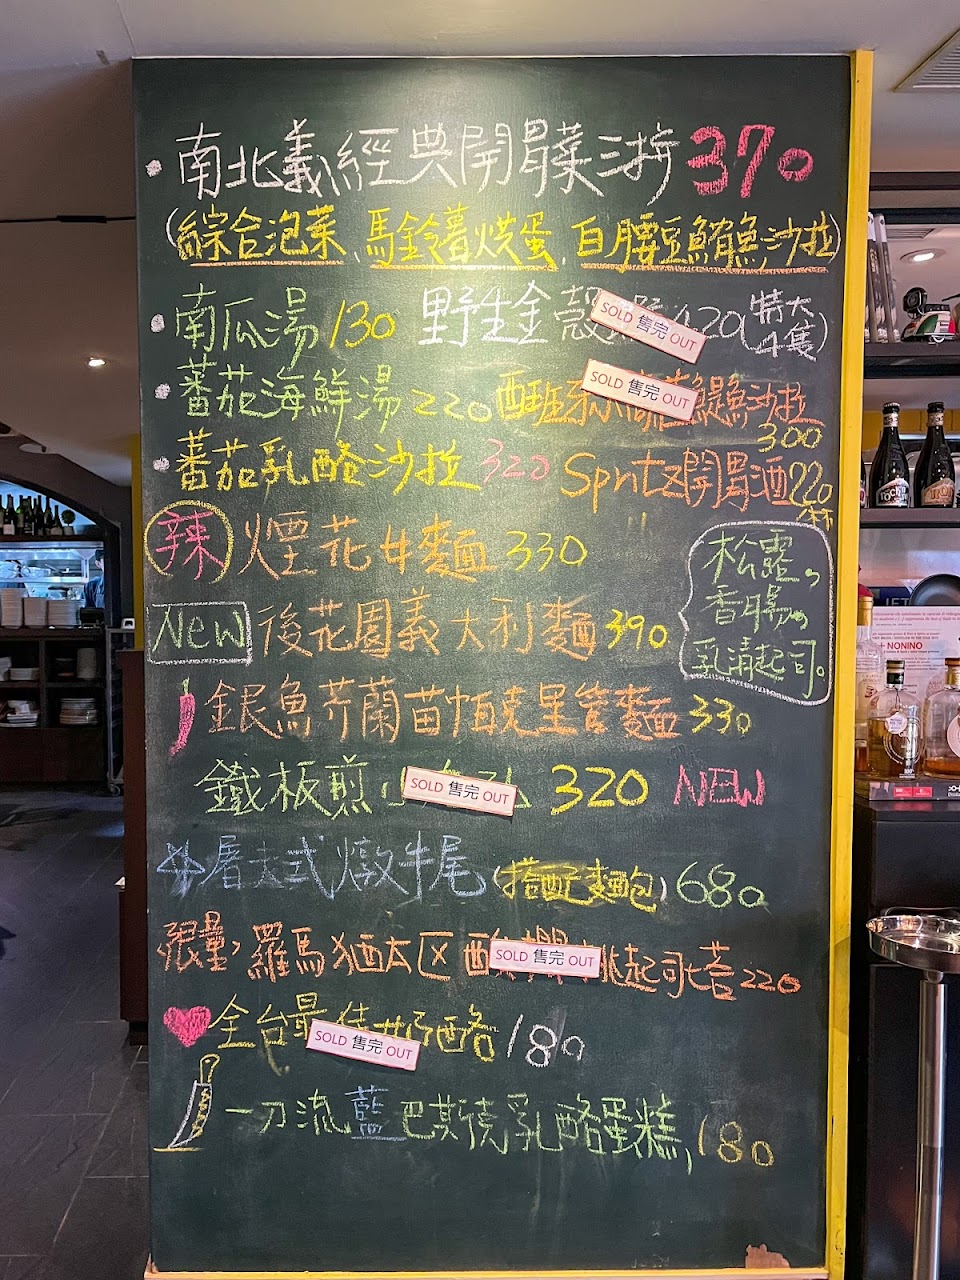 • 南北義經典開胃菜三拼 370
(綜合泡菜、馬鈴薯烘蛋、白腰豆鮪魚沙拉)
• 南瓜湯 130 野生金殼 420 (特大
SOLD 售完 OUT
4隻)
• 蕃茄海鮮湯 220 沙拉
SOLD 售完 OUT
300
• 蕃茄乳酪沙拉 320 Spritz開胃酒 220
辣 煙花女麵 330
松露,
香腸,
乳清起司。
New 後花園義大利麵 390
銀魚芥蘭苗帕克里管麵 330
鐵板煎小 320 NEW
SOLD 售完 OUT
屠夫式燉牛尾 (搭配麵包) 680
限量, 羅馬猶太区 酸櫻 起司塔 220
SOLD 售完 OUT
全台最佳 奶酪 180
SOLD 售完 OUT
一刀流藍巴斯克乳酪蛋糕, 180
NONINO